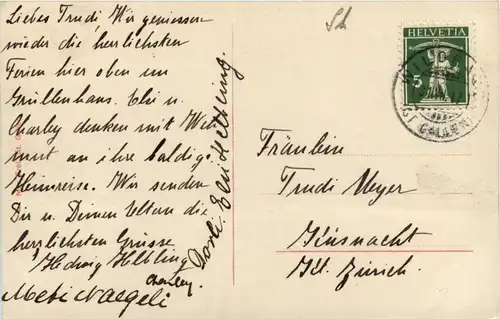 Liebes Trudi, Wir geniessen
wieder die herrlichsten
Ferien hier oben im
Grüllenhaus. Elsi u.
Charley denken mit Weh-
mut an ihre baldige
Heimreise. Wir senden
Dir u. Deinen Eltern die
herzlichsten Grüsse
Hedwig Helbling
Charley.
Meti Naegeli
Dorli. Elsi Helbling.
HELVETIA
5
(ST. GALLEN)
Fräulein
Trudi Meyer
Küsnacht
Kt. Zürich.